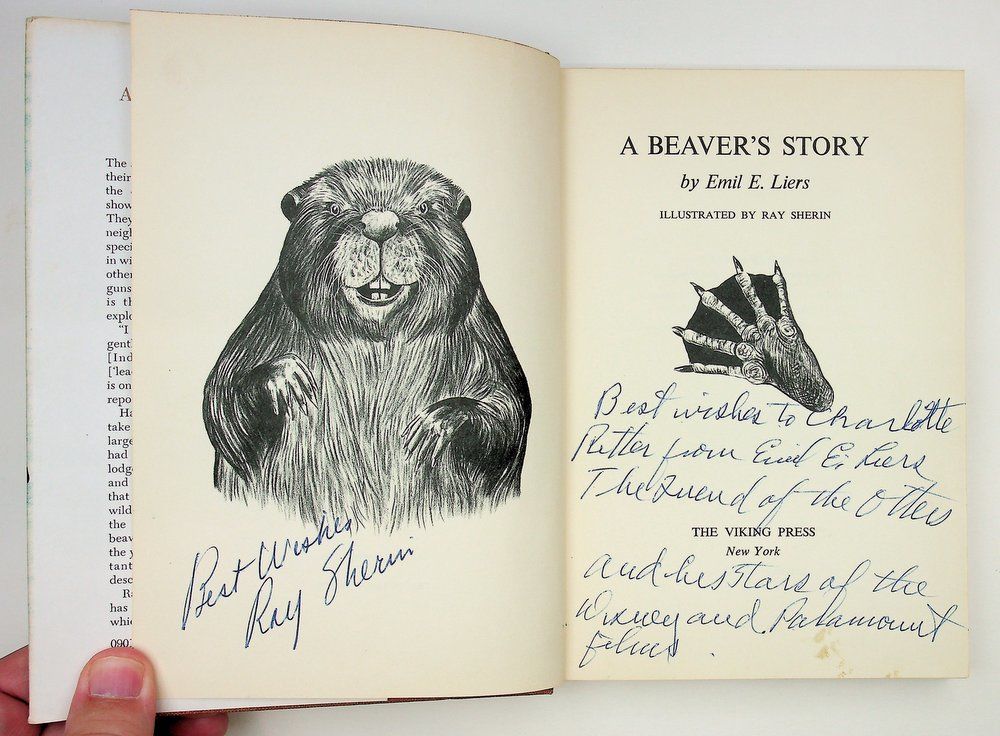 A
The
their
the
show
They
neigh
speci
in wi
other
guns
is th
explo
"I
gentl
[Ind
['lea
is on
repo
Ha
take
large
had
lodg
and
that
wild
the
beav
the y
tant
desc
Ra
has
whic
090
Best Wishes
Ray Sherin
A BEAVER'S STORY
by Emil E. Liers
ILLUSTRATED BY RAY SHERIN
Best wishes to Charlotte
Ritter from Emil E. Liers
The Friend of the Otters
THE VIKING PRESS
New York
and his Stars of the
Disney and Paramount
films.